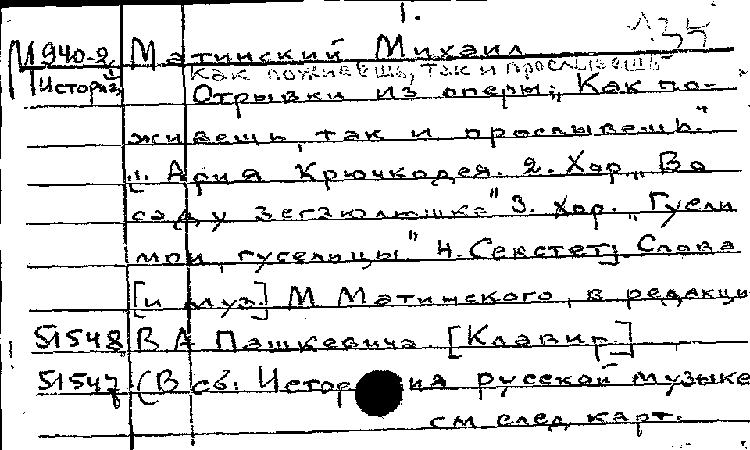 1.
Л 35
М 940-2 Матинский Михаил
Как поживешь, так и прослывешь
История Отрывки из оперы „Как по-
живешь, так и прослывешь."
[1. Ария Крючкодея. 2. Хор „Во
саду зегзюлюшка" 3. Хор. „Гусли
мои, гусельцы" 4. Секстет] Слова
[и муз.] М Матинского, в редакци
51548 В А Пашкевича. [Клавир]
51547 (В сб: История русской музыке
см след карт.